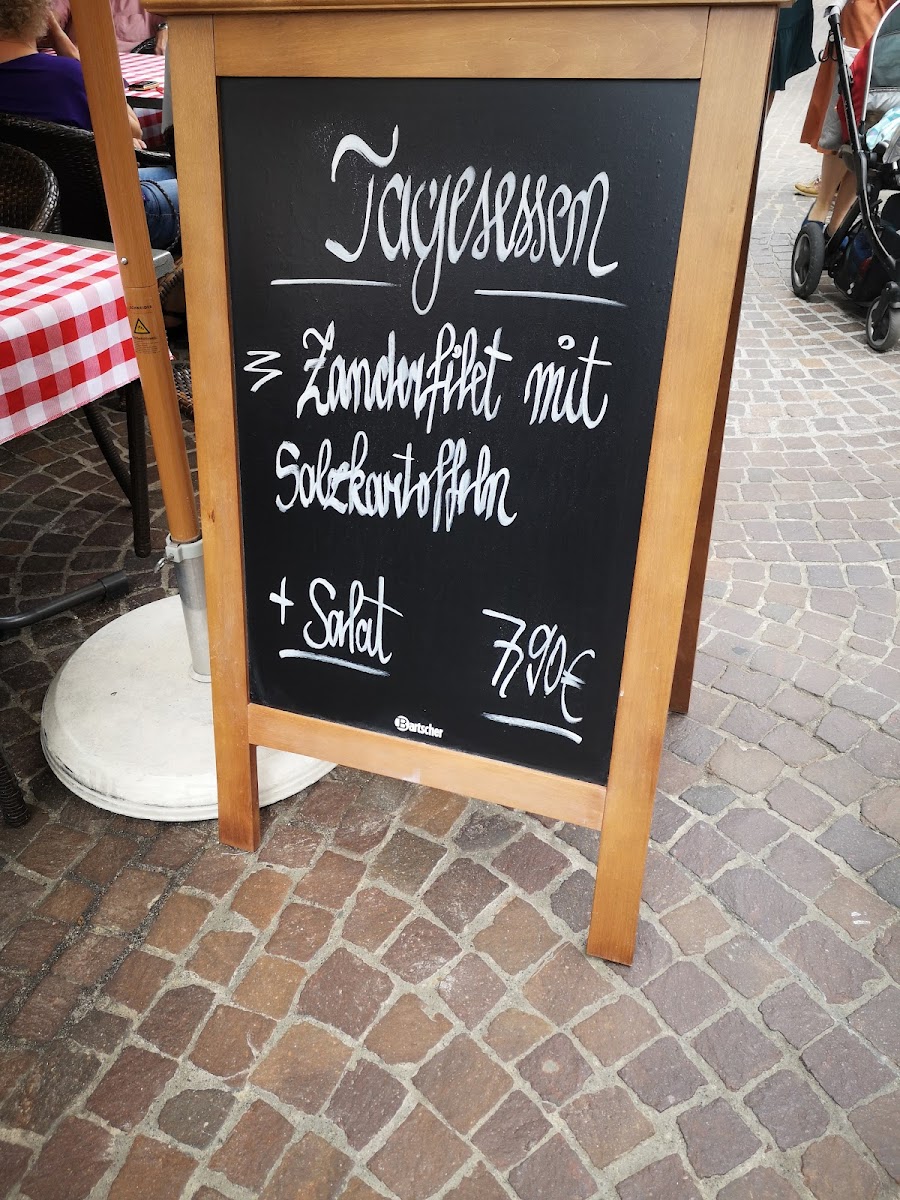 Tagesessen
Zanderfilet mit
Salzkartoffeln
+ Salat
7,90€
Bartscher